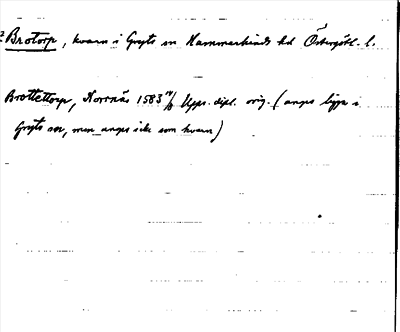 ? Brotorp, kvarn i Gryts sn Hammarkinds hd Östergötl. l.
Brottetorp, Norrnäs 1583 Upps. dipl. orig. (anges ligga i
Gryts sn, men anges icke som kvarn)